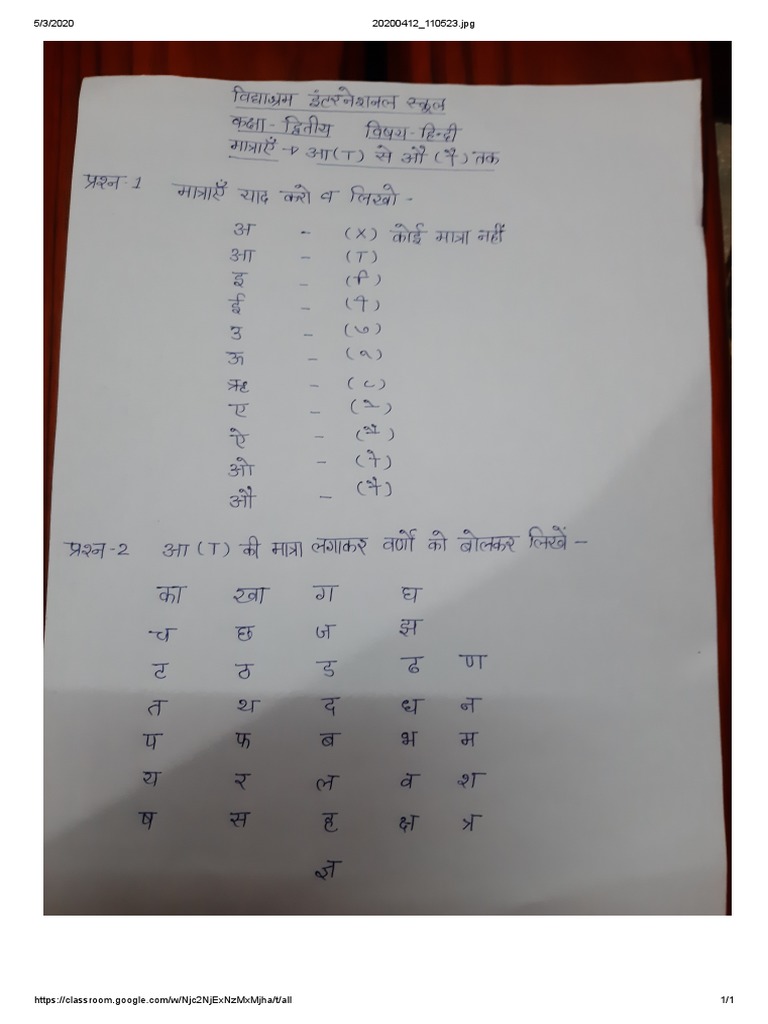 5/3/2020 20200412_110523.jpg
विद्याश्रम इंटरनेशनल स्कूल
कक्षा - द्वितीय विषय - हिन्दी
मात्राएँ → आ (ा) से औ (ौ) तक
प्रश्न-1 मात्राएँ याद करो व लिखो -
अ - (x) कोई मात्रा नहीं
आ - (ा)
इ - (ि)
ई - (ी)
उ - (ु)
ऊ - (ू)
ऋ - (ृ)
ए - (े)
ऐ - (ै)
ओ - (ो)
औ - (ौ)
प्रश्न-2 आ (ा) की मात्रा लगाकर वर्णों को बोलकर लिखें -
का खा ग घ
च छ ज झ
ट ठ ड ढ ण
त थ द ध न
प फ ब भ म
य र ल व श
ष स ह क्ष त्र
ज्ञ
https://classroom.google.com/w/Njc2NjExNzMxMjha/t/all 1/1